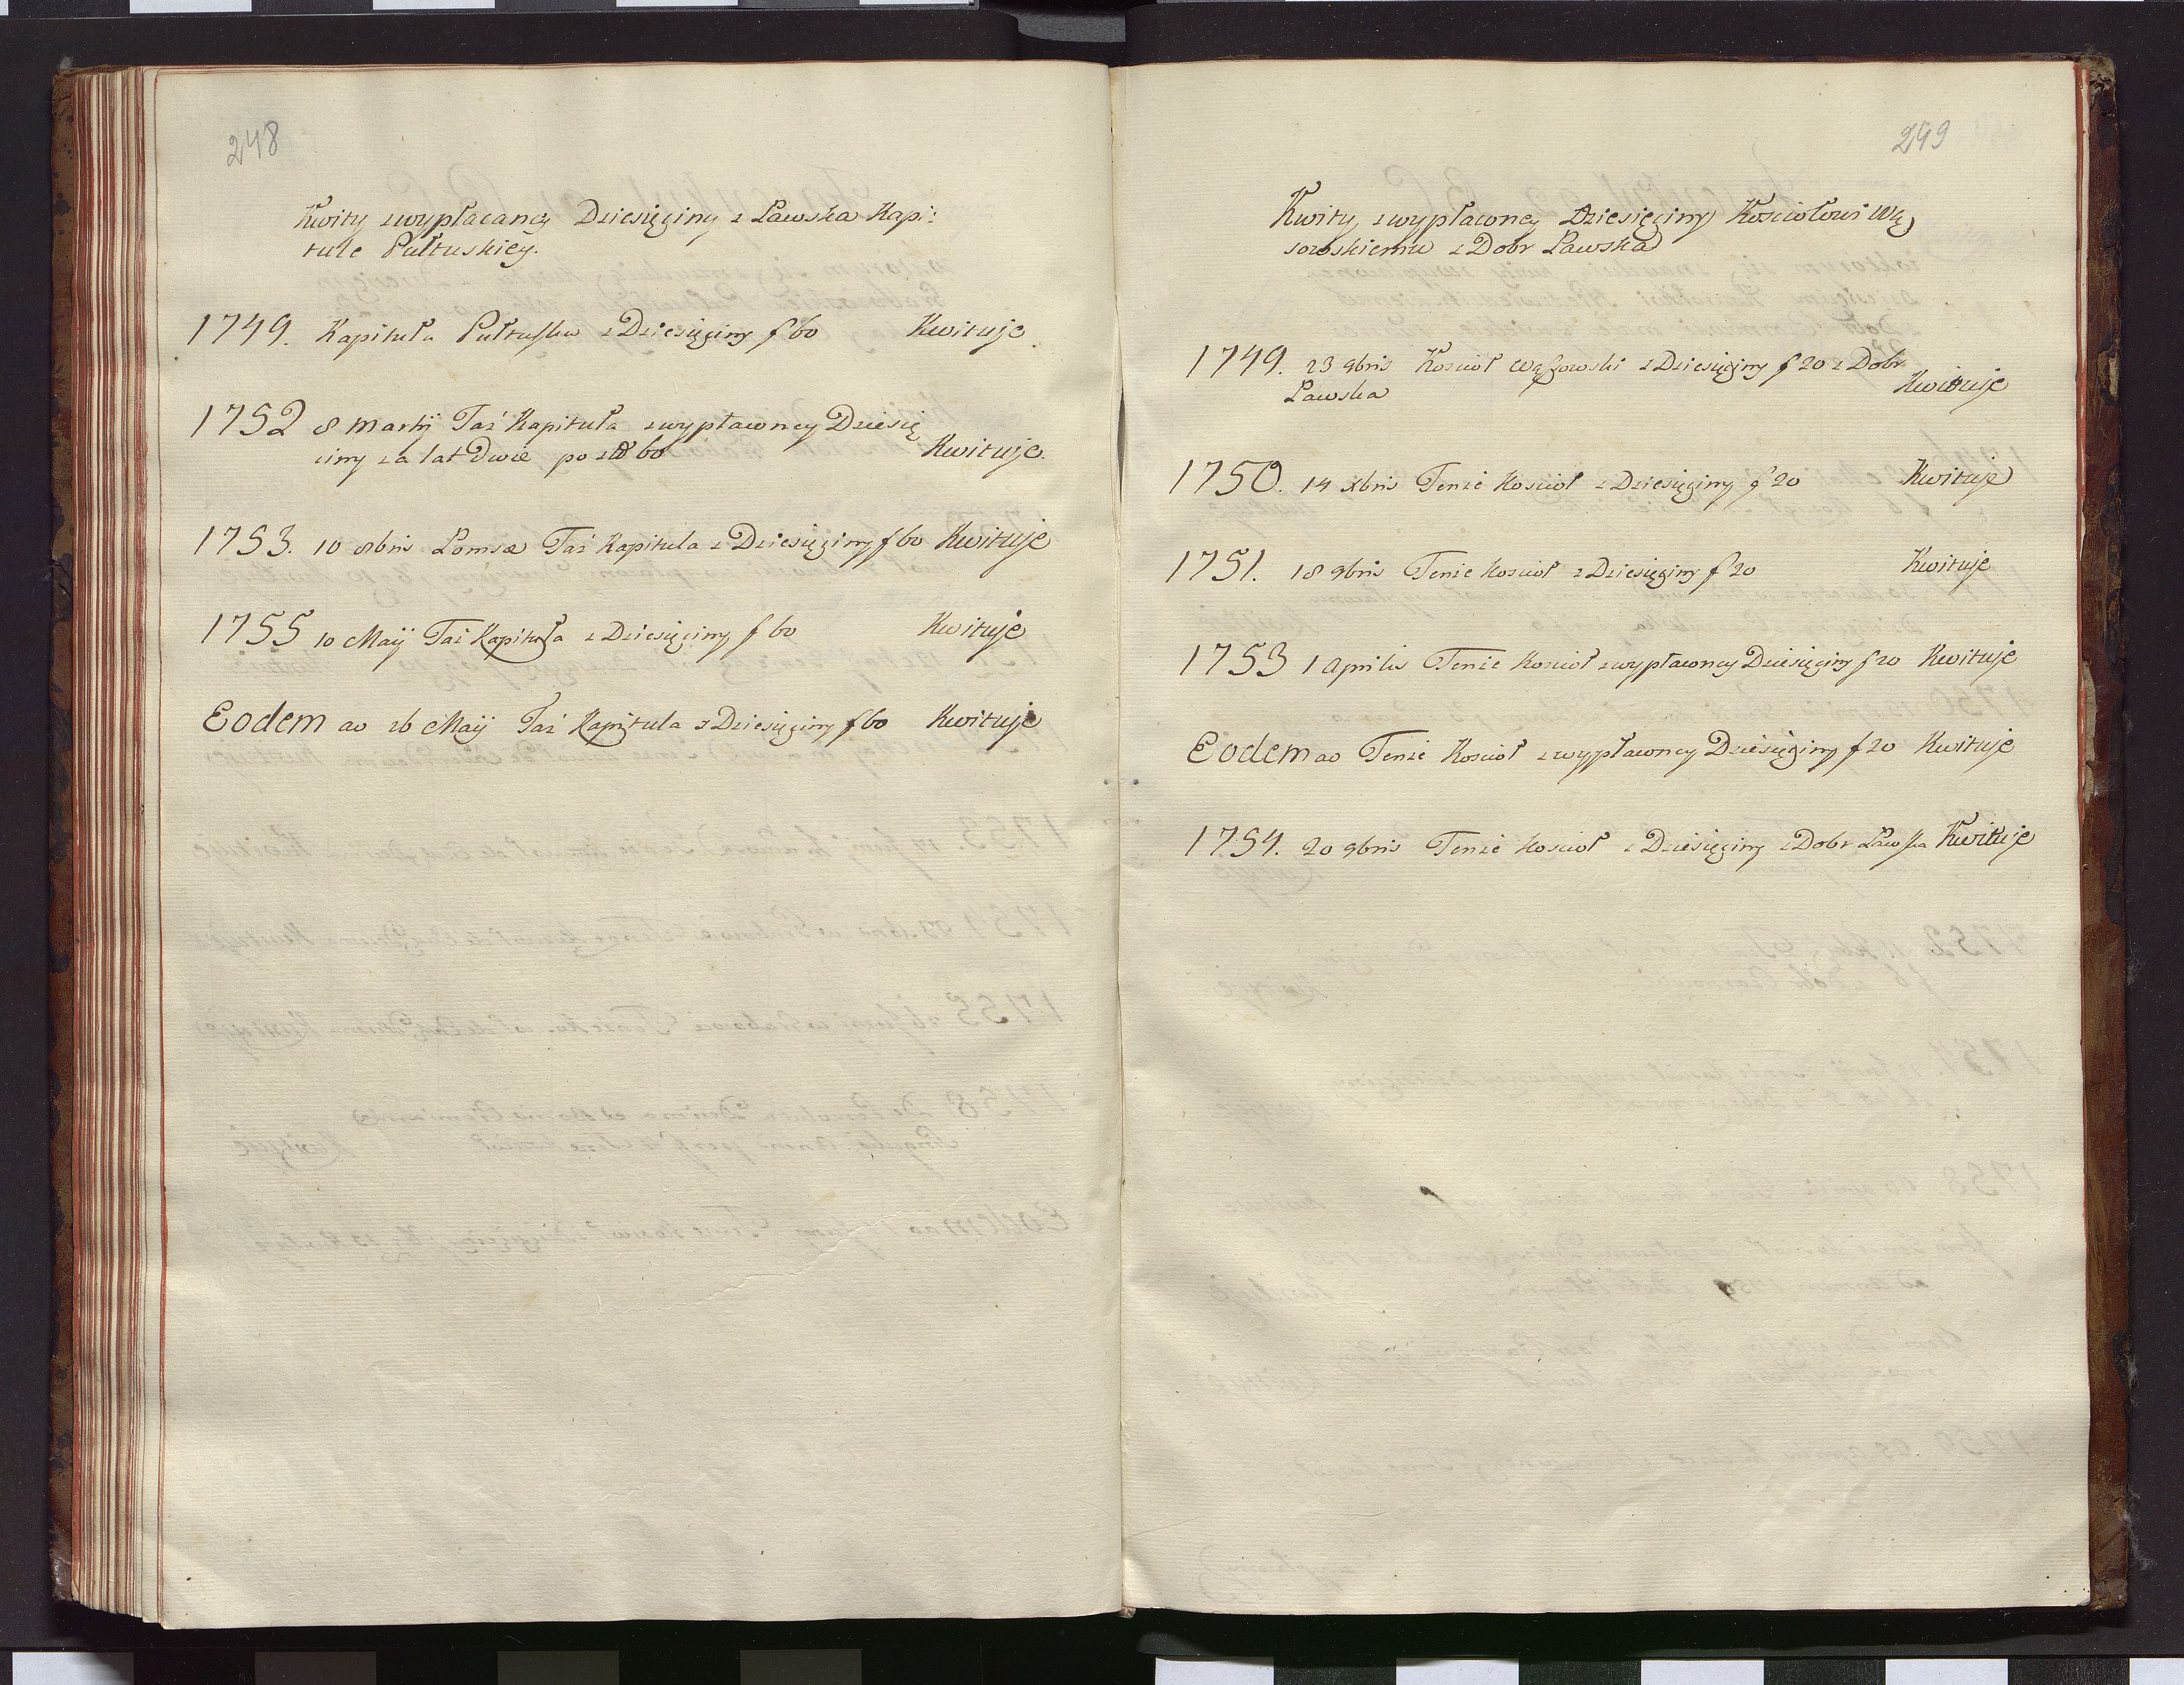 248
Kwity z wypłacaney Dziesięciny z Ławska Kapi:
tule Pułtuskiey.
1749. Kapituła Pułtuska z Dziesięciny f 60 Kwituje
1752 8 Martij Taż Kapituła z wypłaconey Dziesię
ciny za lat Dwie po zł 60 Kwituje.
1753. 10 8bris Lomsæ Taż Kapitula z Dziesięciny f 60 Kwituje
1755 10 Maij Taż Kapituła z Dziesięciny f 60 Kwituje
Eodem ao 26 Maij Taż Kapitula z Dziesięciny f 60 Kwituje
249
Kwity z wypłaconey Dziesięciny Kościołowi Wą
soskiemu z Dobr Ławska
1749. 23 9bris Koscioł Wąssowski z Dziesięciny f 20 z Dobr
Ławska Kwituje
1750. 14 Xbris Tenże Koscioł z Dziesięciny f 20 Kwituje
1751. 18 9bris Tenże Koscioł z Dziesięciny f 20 Kwituje
1753 1 Aprilis Tenże Koscioł z wypłaconey Dziesięciny f 20 Kwituje
Eodem ao Tenże Koscioł z wypłaconey Dziesięciny f 20 Kwituje
1754. 20 9bris Tenże Koscioł z Dziesięciny z Dobr Ławska Kwituje